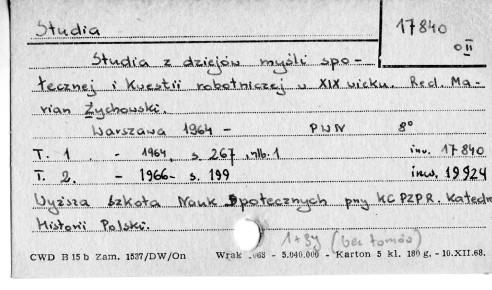 Studia
17840
0 II
Studia z dziejów myśli spo-
łecznej i kwestii robotniczej w XIX wieku. Red. Ma-
rian Żychowski.
Warszawa 1964 - PWN 8°
T. 1. - 1964, s. 267, nlb. 1 inw. 17840
T. 2. - 1966 - s. 199 inw. 19924
Wyższa Szkoła Nauk Społecznych przy KC PZPR. Katedra
Historii Polski.
1+3y (bez tomów)
CWD B 15 b Zam. 1537/DW/On Wrak .068 - 5.040.000 - Karton 5 kl. 180 g. - 10.XII.68.